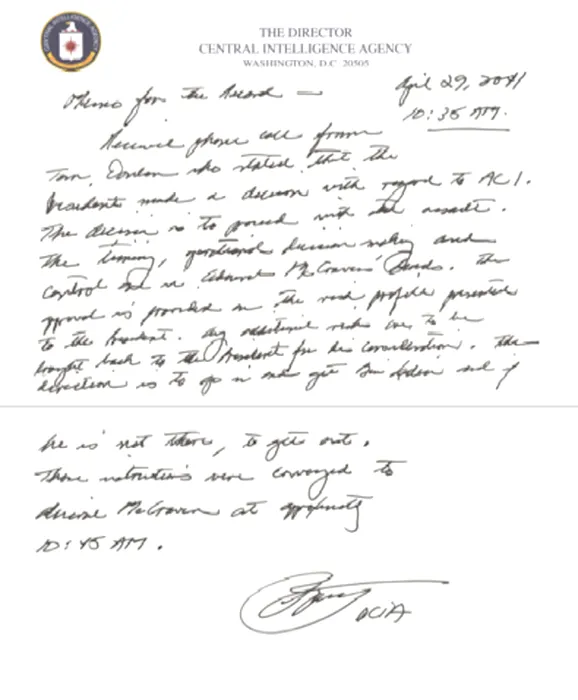 THE DIRECTOR
CENTRAL INTELLIGENCE AGENCY
WASHINGTON, D.C. 20505
April 29, 2011
Memo for the Record —
10:35 AM.
Received phone call from
Tom Donilon who stated that the
President made a decision with regard to AC1.
The decision is to proceed with the assault.
The timing, operational decision making and
control are in Admiral McRaven's hands. The
approval is provided on the risk profile presented
to the President. Any additional risks are to be
brought back to the President for his consideration. The
direction is to go in and get Bin Laden and if
he is not there, to get out.
Those instructions were conveyed to
Admiral McRaven at approximately
10:45 AM.
DCIA